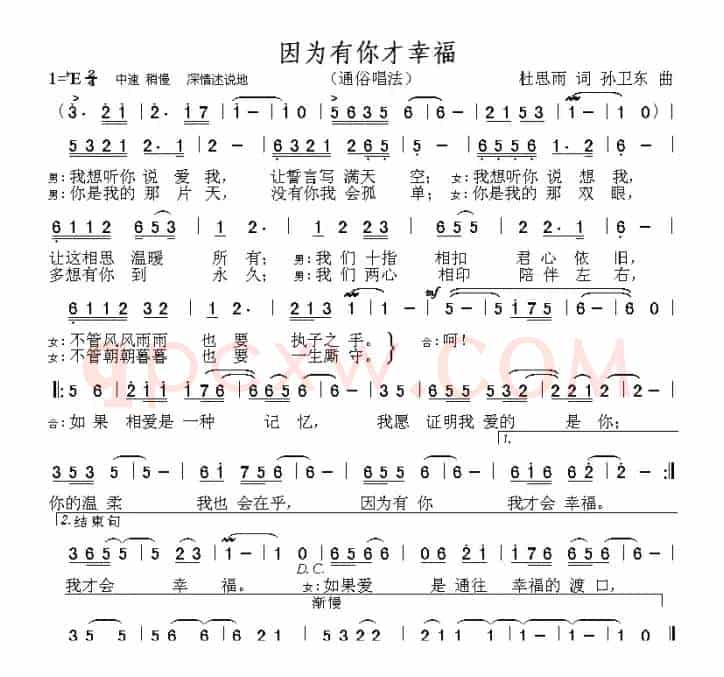 因为有你才幸福
1=♭E 2/4 中速 稍慢 深情述说地 （通俗唱法） 杜思雨 词 孙卫东 曲
（3· 21 | 2· 17 | 1- | 10 | 5635 | 6- | 2153 | 1- | 10）|
5321 2· | 6321 2 | 5- | 6556 1· | 2 6· |
男:我想听你 说 爱 我, 让誓言写 满天 空; 女:我想听你 说 想 我,
男:你是我的 那 片 天, 没有你我 会孤 单; 女:你是我的 那 双 眼,
6112 653 | 1 2· | 12 223 | 65 35 | 6- |
让这相思 温暖 所 有; 男:我 们 十指 相扣 君 心 依 旧,
多想有你 到 永 久; 男:我 们 两心 相印 陪 伴 左 右,
6112 32 | 1 2· | 213 1 | 1- | 5- | 5 175 | 6- | 60 |
女:不管风风雨雨 也 要 执子之 手。 合:呵!
女:不管朝朝暮暮 也 要 一生厮 守。
qpcxw.COM
|: 5 6 | 211 | 176 | 6- | 35 | 655 532 | 2- |
合:如 果 相爱是 一种 记 忆, 我愿 证明我 爱的 是 你;
1.
353 5 | 5- | 61 | 7565 | 6- | 6535 6 | 16 2 | 2- :||
你的温 柔 我也 会在乎, 因为有 你 我才会 幸福。
2. 结束句
3655 | 5 23 | 1- | 10 | 356 | 06 21 | 176 656 | 60 |
D.C.
我才会 幸 福。 女:如果爱 是 通往 幸福的 渡 口,
渐慢
35 5 | 6 56 | 6221 | 5- | 50 | 35 56 | 621 1 | 1- | 1- ||